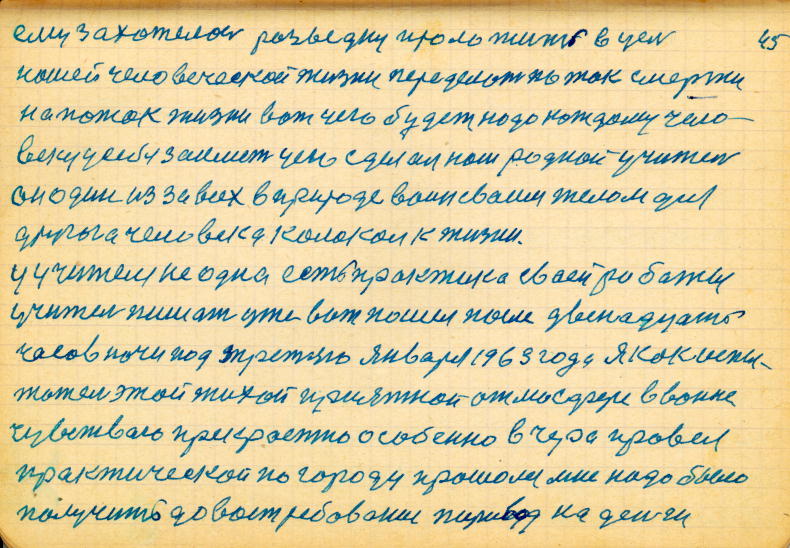 45
ему захотелося разведку проложить в цел
нашей человеческой жизни переделать поток смерти
на поток жизни вот чего будет надо каждому чело-
веку у себя заиметь чего сделал наш родной учител
он один из за всех в природе воин своим телом для
другога человека колокол к жизни.
у учителя не одна есть практика своей работы
учител пишат уже вот пошел после двенадцать
часов ночи под третяго января 1963 года я как испы-
тател этой тихой приятной атмосфере в ванне
чувстваю прекрастно особенно вчера провел
практической по городу прошол и мне надо было
получить до востребования перевод на деньги